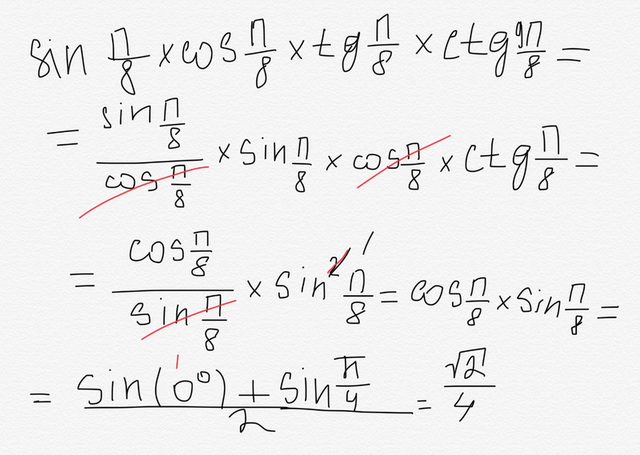 sin π/8 × cos π/8 × tg π/8 × ctg 9π/8 =
= sin π/8 / cos π/8 × sin π/8 × cos π/8 × ctg π/8 =
= cos π/8 / sin π/8 × sin² ¹ π/8 = cos π/8 × sin π/8 =
= (sin(0°) + sin π/4) / 2 = √2 / 4